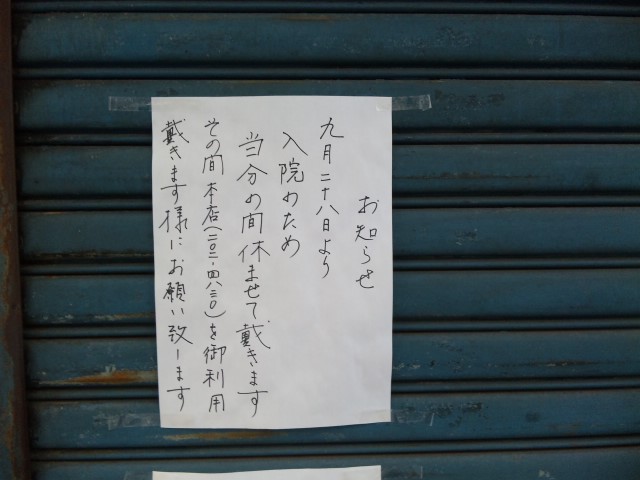 お知らせ
九月二十八日より
入院のため
当分の間休ませて戴きます
その間本店(二〇二-四八三〇)を御利用
戴きます様にお願い致します